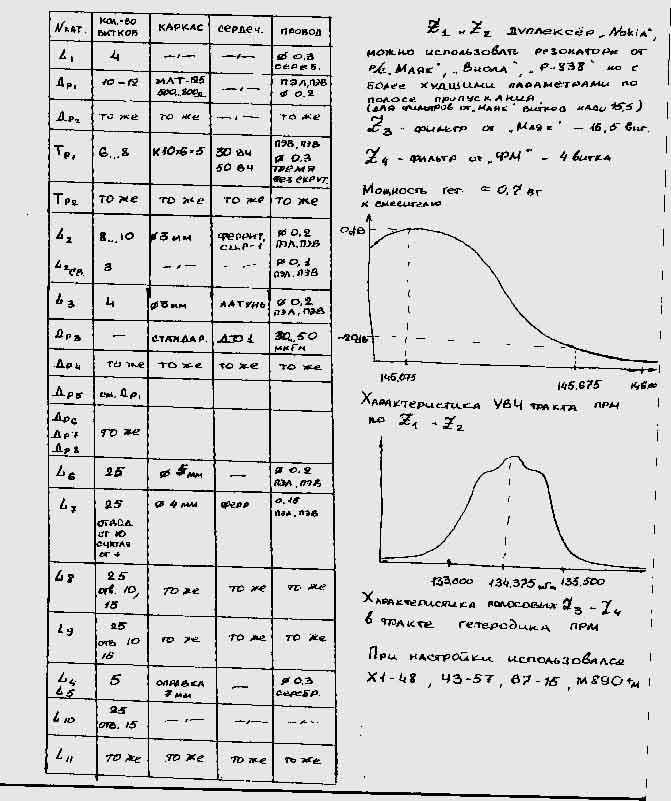 № КАТ. КОЛ-ВО ВИТКОВ КАРКАС СЕРДЕЧ. ПРОВОД
L1 4 —·— —·— ⌀ 0,3 СЕРЕБ.
Др1 10–12 МЛТ-0,25 ПЭЛ, ПЭВ ⌀ 0.2
Др2 ТО ЖЕ ТО ЖЕ —·— ТО ЖЕ
Тр1 6...8 К10×6×5 30 ВЧ 50 ВЧ ПЭВ, ПЭВ ⌀ 0.3 ТРЕМЯ БЕЗ СКРУТ.
Тр2 ТО ЖЕ ТО ЖЕ ТО ЖЕ ТО ЖЕ
L2 8...10 ⌀ 3 мм ФЕРРИТ, СЦР-1 ⌀ 0,2 ПЭЛ, ПЭВ
L2св 3 —·— —·— ⌀ 0,1 ПЭЛ, ПЭВ
L3 4 ⌀ 5 мм ЛАТУНЬ ⌀ 0,2 ПЭЛ, ПЭВ
Др3 — СТАНДАР. 30...50 мкГн
Др4 ТО ЖЕ ТО ЖЕ ТО ЖЕ ТО ЖЕ
Др5 см. Др1
Др6
Др7 ТО ЖЕ
Др8
L6 25 ⌀ 5 мм — ⌀ 0.2 ПЭЛ, ПЭВ
L7 25 ОТВОД ОТ 10 СЧИТАЯ ОТ ⌀ 4 мм ФЕРР 0.15 ПЭЛ, ПЭВ
L8 25 отв. 10, 15 ТО ЖЕ ТО ЖЕ ТО ЖЕ
L9 25 отв 10 15 ТО ЖЕ ТО ЖЕ ТО ЖЕ
L4 L5 5 ОПРАВКА 7 мм — ⌀ 0,3 СЕРЕБР.
L10 25 отв. 15 —·— —·— —·—
L11 ТО ЖЕ ТО ЖЕ ТО ЖЕ ТО ЖЕ
Z1 и Z2 ДУПЛЕКСЕР „Nokia",
МОЖНО ИСПОЛЬЗОВАТЬ РЕЗОНАТОРЫ ОТ
Р/с „МАЯК", „ВИОЛА", „Р-838" НО С
БОЛЕЕ ХУДШИМИ ПАРАМЕТРАМИ ПО
ПОЛОСЕ ПРОПУСКАНИЯ.
(ДЛЯ ФИЛЬТРОВ ОТ „МАЯК" ВИТКОВ НАДО 15,5)
Z3 - ФИЛЬТР ОТ „МАЯК" – 16,5 ВИТ.
Z4 - ФИЛЬТР ОТ „ФМ" – 4 ВИТКА
МОЩНОСТЬ ГЕТ. ≈ 0,7 ВТ
К СМЕСИТЕЛЮ
0 дБ
-20дБ
145,075 145,675
ХАРАКТЕРИСТИКА УВЧ ТРАКТА ПРМ
по Z1 - Z2
133,000 134,375 мГц 135,500
ХАРАКТЕРИСТИКА ПОЛОСОВЫХ Z3 – Z4
В ТРАКТЕ ГЕТЕРОДИНА ПРМ
ПРИ НАСТРОЙКИ ИСПОЛЬЗОВАЛСЯ
Х1-48, Ч3-57, В7-15,